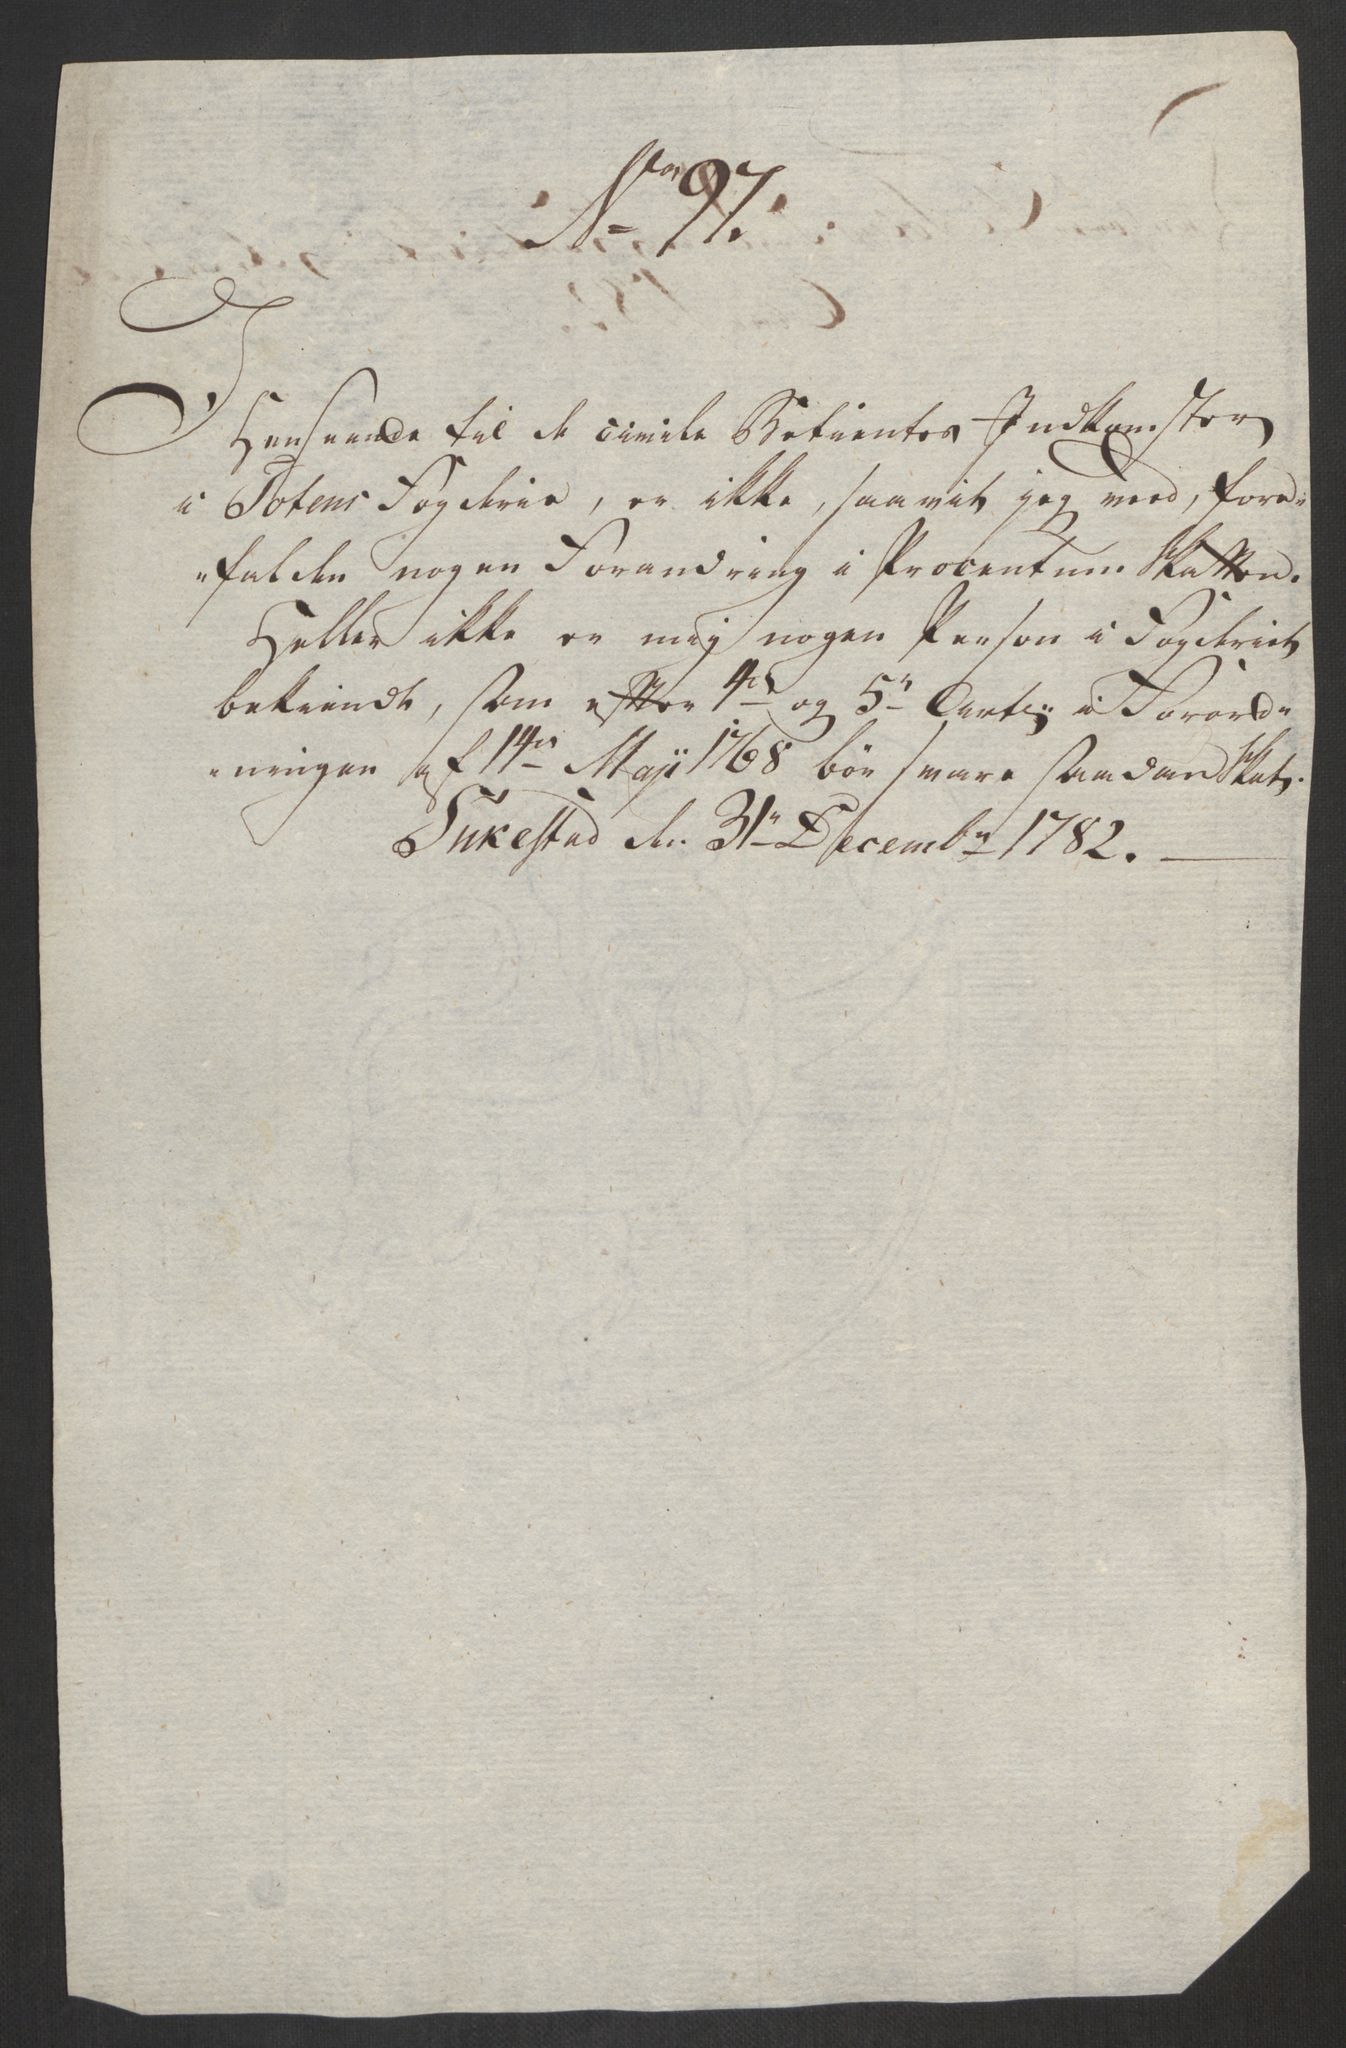 No 97.
I
Henseende til de civile Betientes Indkomster
i Totens Fogderie, er ikke, saavit jeg veed, fore-
-falden nogen Forandring i Procentum Skatten.
Heller ikke er mig nogen Person i Fogderiet
bekiendt, som efter 4de og 5te Articl i Forord-
-ningen af 14de Maji 1768 bör svare saadan Skat.
Sukestad den 31te Decembr 1782.